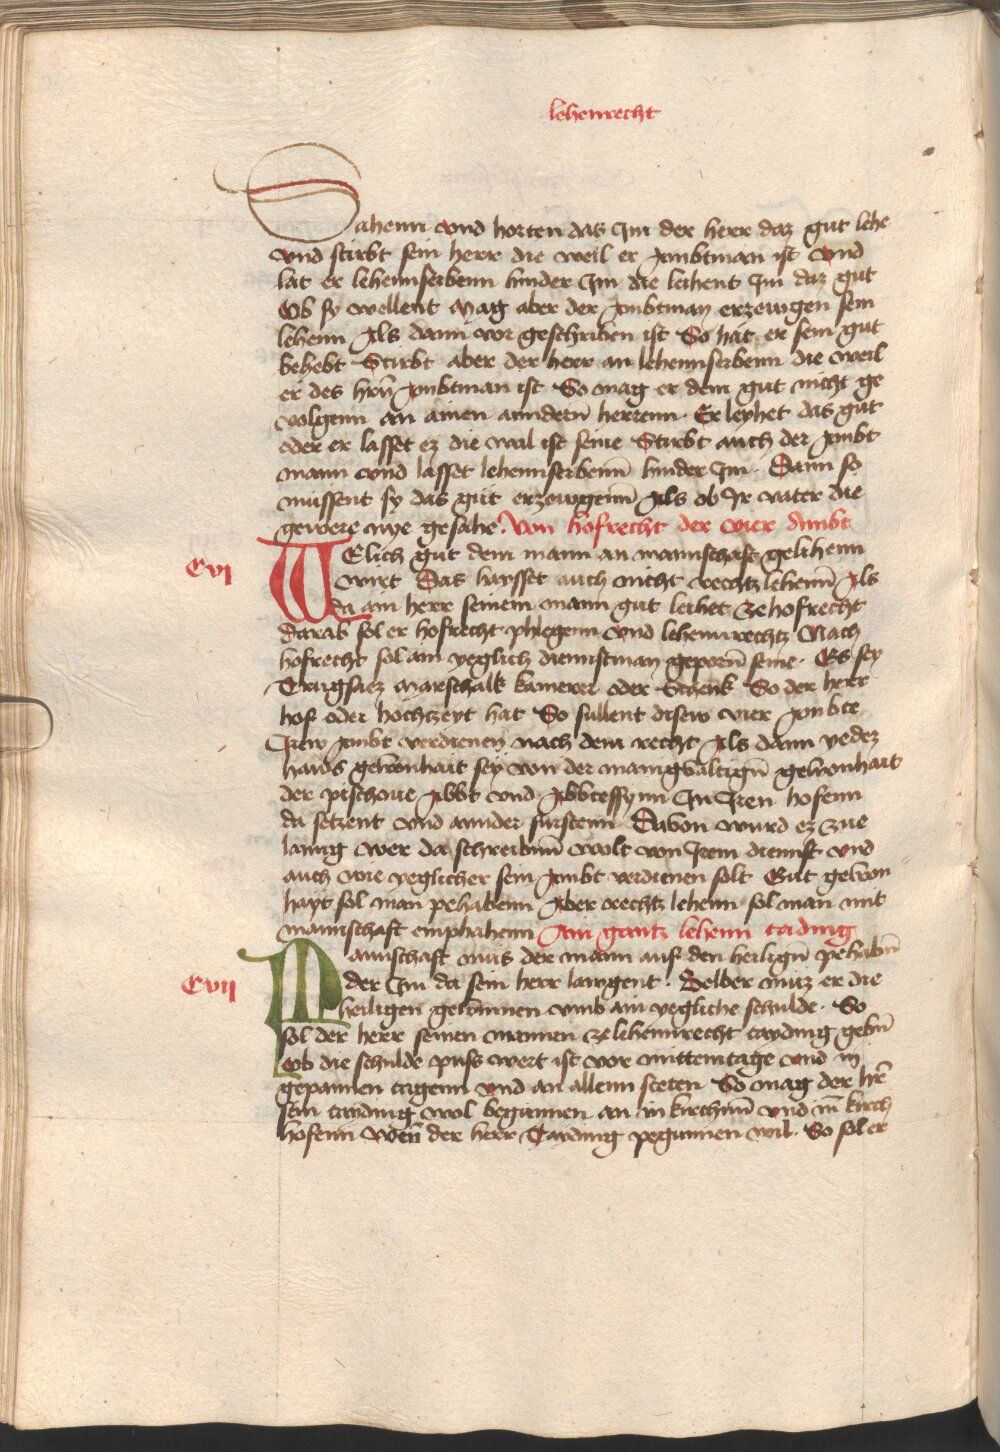 lehenrecht
Sahenn vnd horten das Im der herr daz gut lehe
vnd stirbt sein herr die weil er Ambtman ist vnd
lat er lehennserbenn hinder Im die leihent Im daz gut
Ob sy wellent Mag aber der Ambtman erzewgen sein
lehenn Als dann vor geschriben ist So hat er sein gut
behebt Stirbt aber der herr an lehennserbenn die weil
er des hrñ Ambtman ist So mag er dem gut nicht ge
volgenn an ainen anndern herrenn. Er leyhet das gut
oder er lasset ez die weil ist seine Stirbt auch der Ambt
mann vnd lasset lehennserbenn hinder Im. Dann so
mussent sy das gut erzewgenn Als ob Ir vater die
gewere nye gesahe. Von hofrecht der vier Ambt
Cvj
WElich gut dem mann an mannschaft gelihenn
wirt Das haysset auch nicht rechtz lehenn Als
da ain herr seinem mann gut leihet ze hofrecht
darab sol er hofrecht phlegenn vnd lehennrechtz Nach
hofrecht sol ain yeglich diennstman geporñ seine. Es sey
Trugsacz Marschalk kamerer oder Schenk So der herr
hof oder hochtzeyt hat So sullent disew vier Ambte
Irew Ambt verdienen nach dem recht Als dann yedez
hauss gewonhait sey von der manigualtigñ gewonhait
der pischoue Abbt vnd Abbtessynn In Iren hofenn
da setzent vnd annder fursten Dauon wurd ez zue
lanng wer da schreibnn wolt von Irem diennst vnd
auch wie yeglicher sein Ambt verdienen solt Gut gewon
hayt sol man pehabenn Aber rechtz lehenn sol man mit
mannschaft emphahenn Ain gantz lehenn taiding
Cvij
Mannschaft mus der mann auf den heiligñ pehabñ
der Im da sein herr laugent. Selber muz er die
heiligen gewinnen vmb ain yegliche schulde. So
sol der herr seinen mannen ze lehennrecht tayding gebñ
Ob die schulde puss wert ist vor mittemtage vnd in
gepannen tagenn vnd an allenn steten So mag der hr̃
sein taiding wol beginnen an in kirchnn vnd in kirch
hofenn Wenn der herr Tayding peginnen wil. So sol er